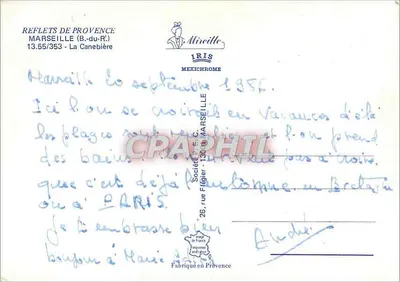 REFLETS DE PROVENCE
MARSEILLE (B.-du-R.)
13.55/353 - La Canebière
Mireille
IRIS
MEXICHROME
Marseille 20 septembre 1986
Ici l'on se croirait en vacances d'été
les plages sont et l'on prend
des bains pas à croire
que c'est déjà l'automne en Bretagne
ou à PARIS.
Je t'embrasse bien
bonjour à Marie
André
Société P.E.C.
26, rue Flégier 13001 MARSEILLE
CPARAMA.COM
Fabriqué en Provence